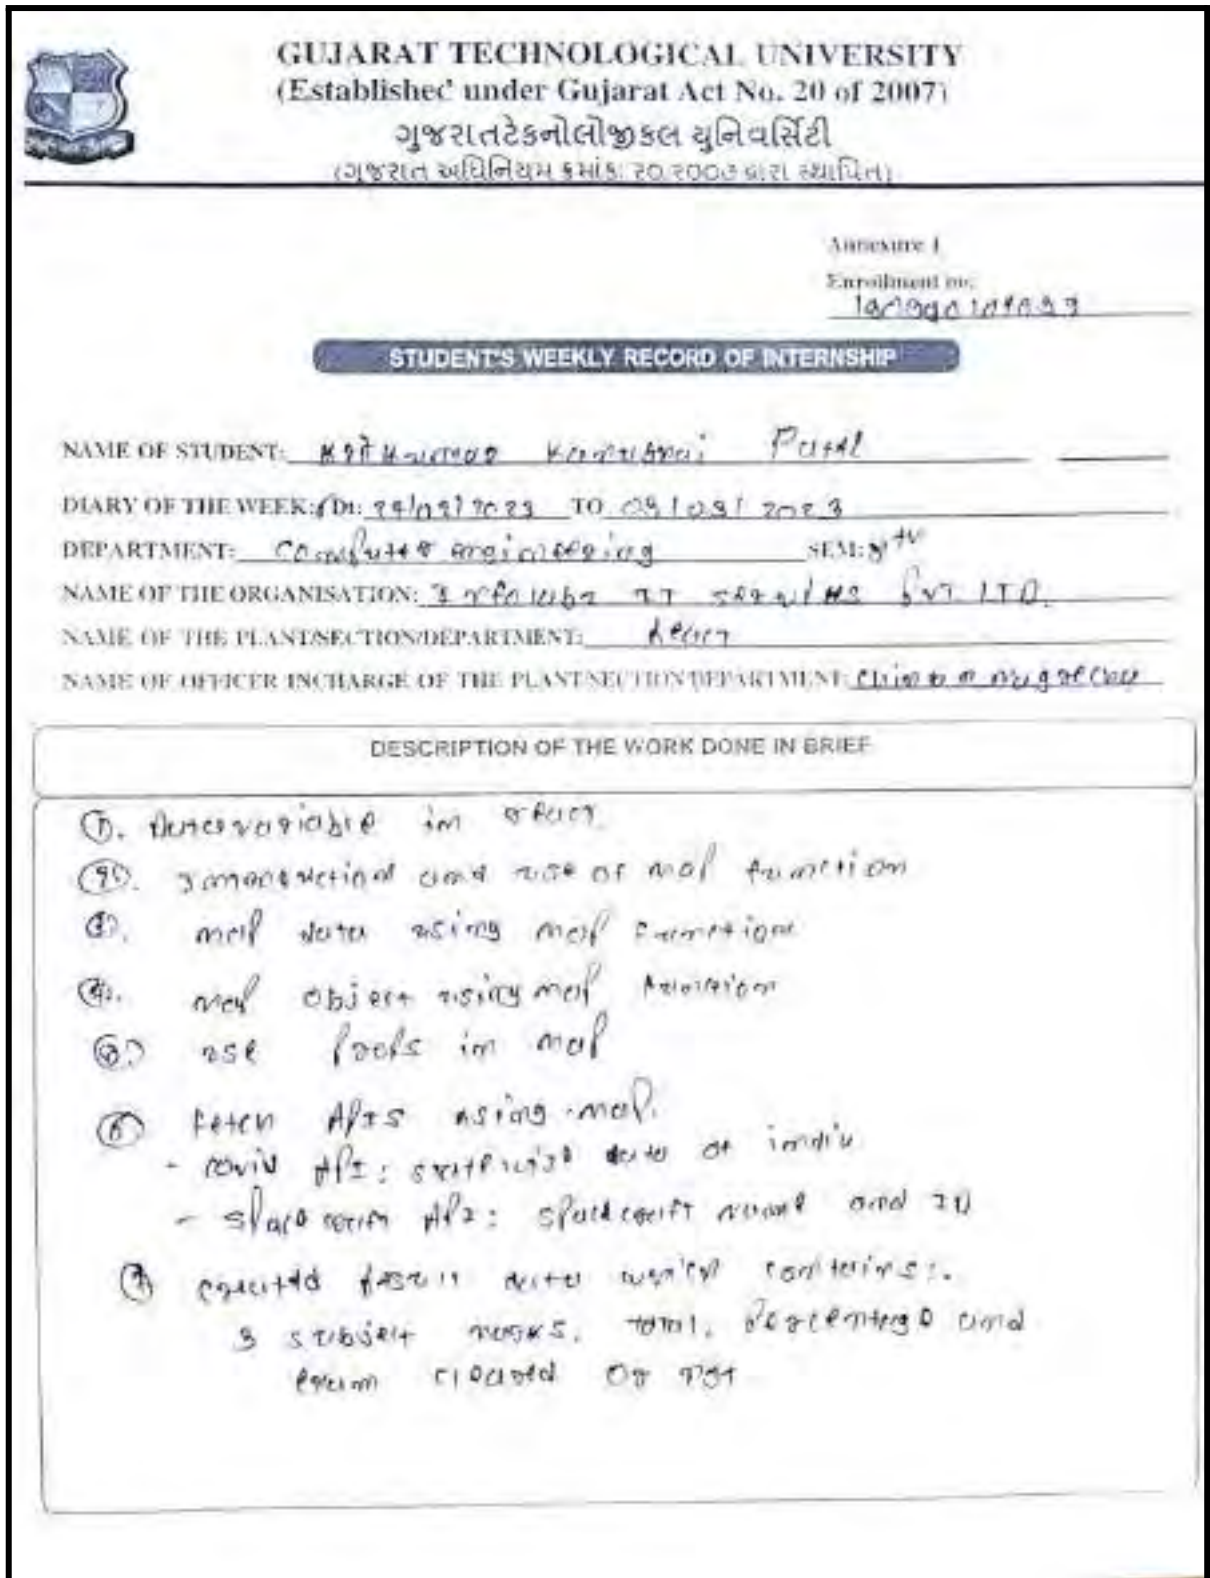 GUJARAT TECHNOLOGICAL UNIVERSITY
(Established under Gujarat Act No. 20 of 2007)
ગુજરાતટેકનોલોજીકલ યુનિવર્સિટી
(ગુજરાત અધિનિયમ ક્રમાંક: ૨૦ ૨૦૦૭ દ્વારા સ્થાપિત)
Annexure I
Enrollment no.
STUDENT'S WEEKLY RECORD OF INTERNSHIP
NAME OF STUDENT: Patel
DIARY OF THE WEEK: Dt: TO 2023
DEPARTMENT: Computer engineering SEM: 8th
NAME OF THE ORGANISATION: PVT. LTD.
NAME OF THE PLANT/SECTION/DEPARTMENT:
NAME OF OFFICER INCHARGE OF THE PLANT/SECTION/DEPARTMENT:
DESCRIPTION OF THE WORK DONE IN BRIEF
①. variable in react
and use of map function
map data using map function
④. map object using map function
use props in map
⑥ Fetch APIs using map.
- covid API: data of india
- API: spacecraft name and ID
⑦ data which contains:
3 subject marks, total, percentage and
exam cleared or not